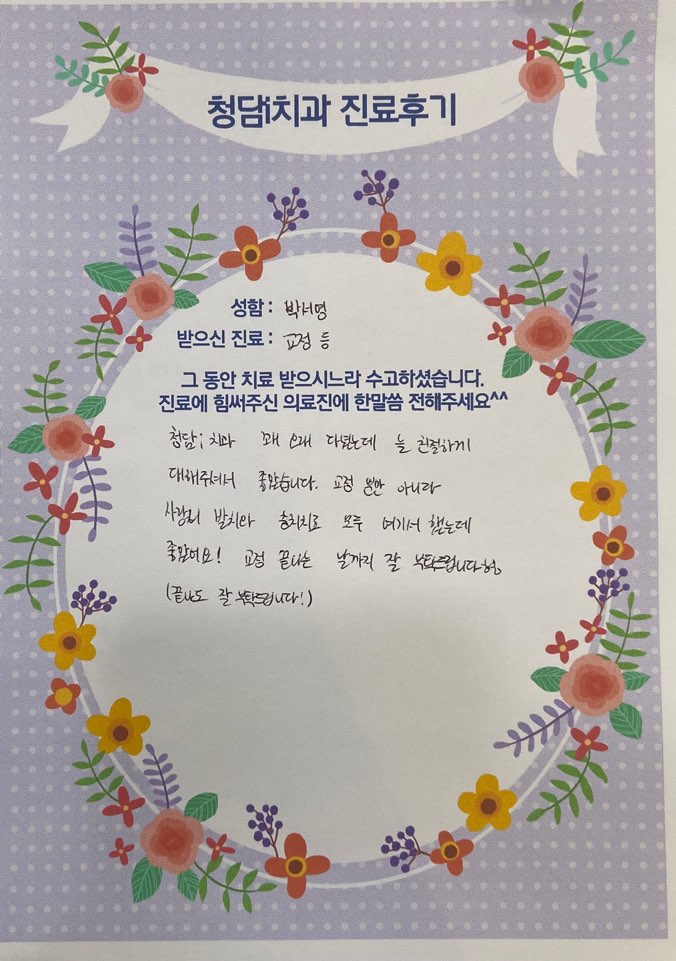 청담i치과 진료후기
성함 : 박서영
받으신 진료 : 교정 등
그 동안 치료 받으시느라 수고하셨습니다.
진료에 힘써주신 의료진에 한말씀 전해주세요^^
청담i치과 꽤 오래 다녔는데 늘 친절하게
대해주셔서 좋았습니다. 교정 뿐만 아니라
사랑니 발치와 충치치료 모두 여기서 했는데
좋았어요! 교정 끝나는 날까지 잘 부탁드립니다
(끝나도 잘 부탁드립니다!)